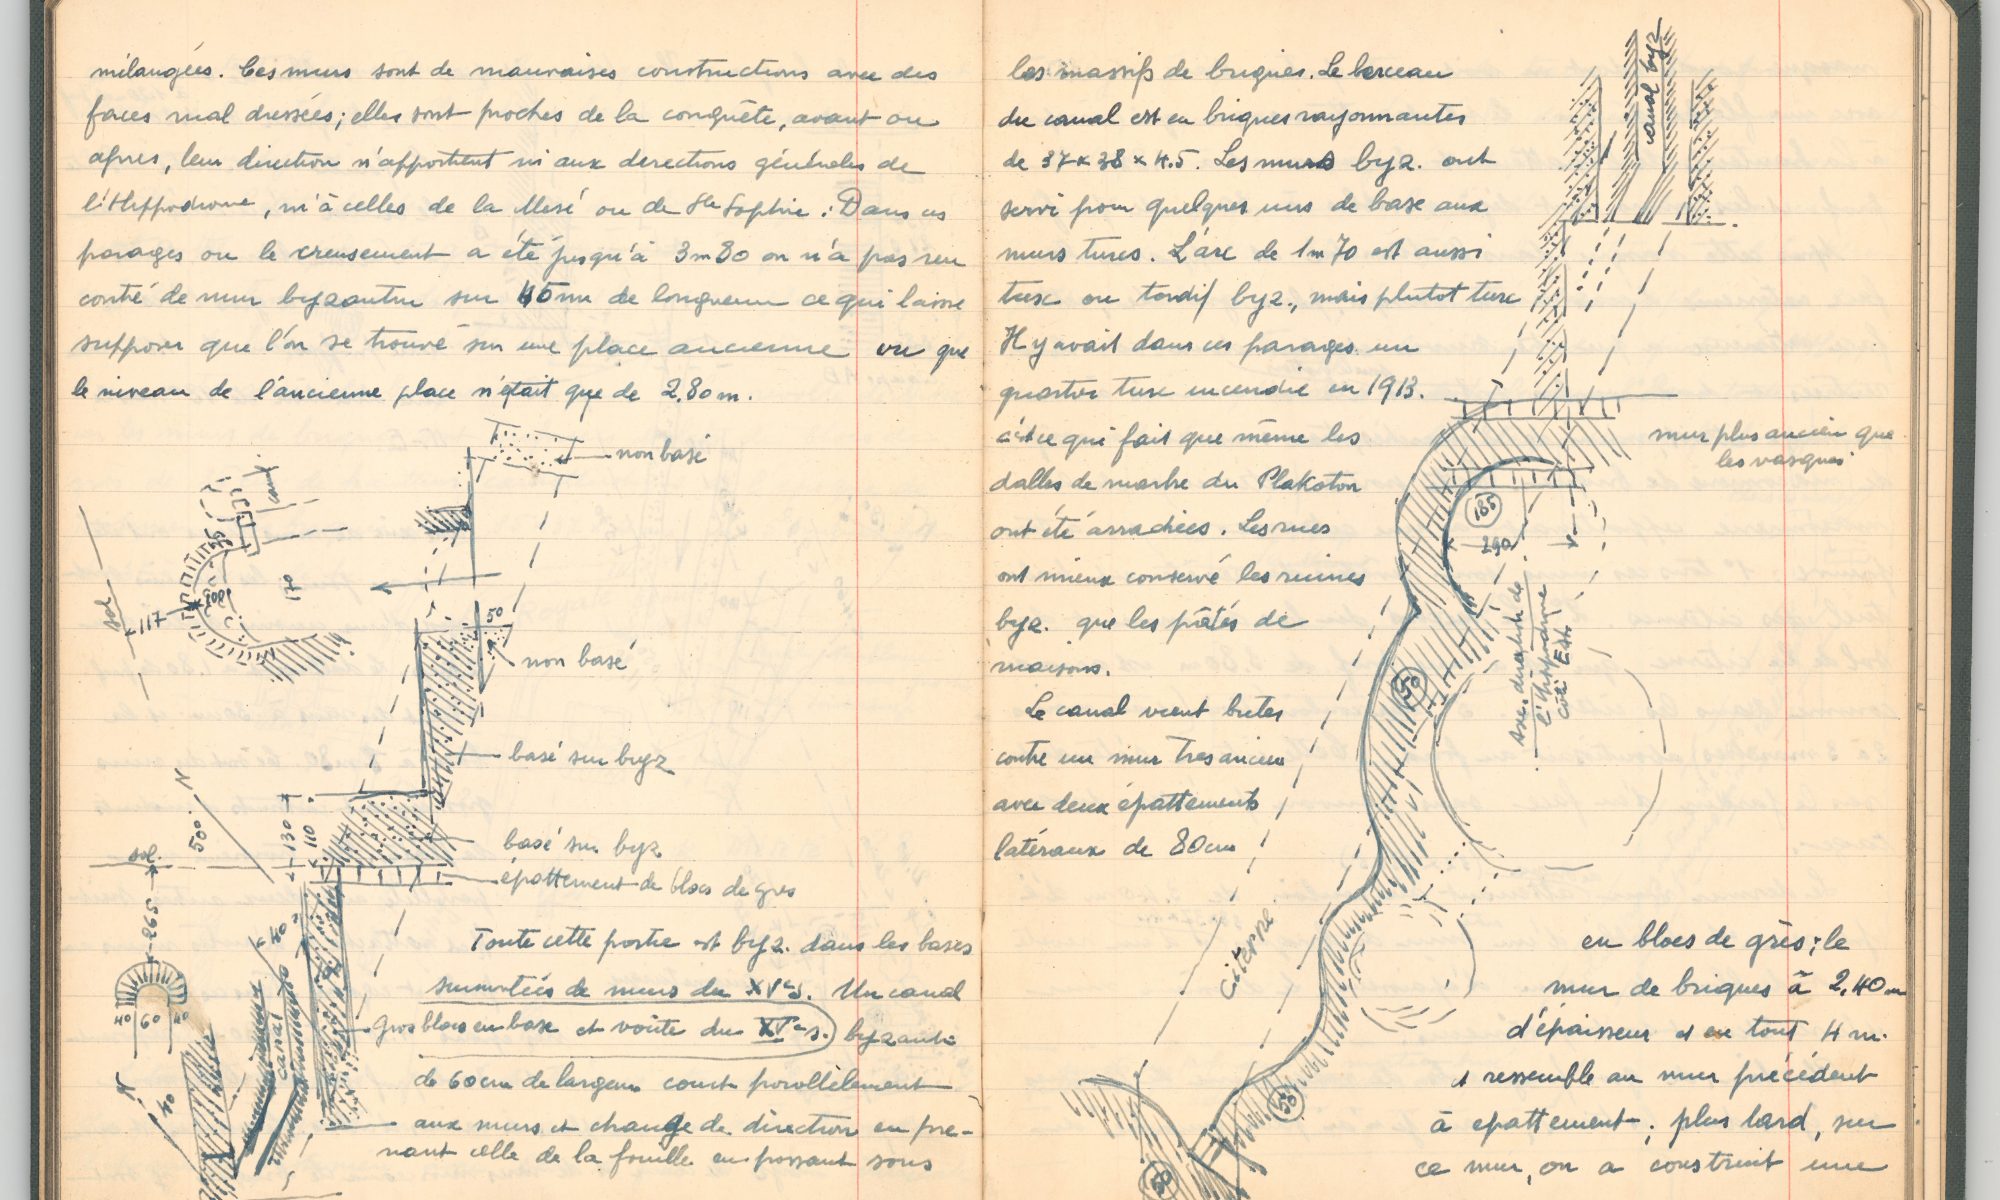 mélangées. Ces murs sont de mauvaises constructions avec des
faces mal dressées; elles sont proches de la conquête, avant ou
après, leur direction n'appartient ni aux directions générales de
l'Hippodrome, ni à celles de la Mesé ou de Ste Sophie. Dans ces
parages ou le creusement a été jusqu'à 3m80 on n'a pas ren
contré de mur byzantin sur 45m de longueur ce qui laisse
supposer que l'on se trouve sur une place ancienne vu que
le niveau de l'ancienne place n'était que de 2.80m.
non basé
canal
170
100
117
sol
50
non basé
basé sur byz
N
500
130
110
sol.
basé sur byz
épattement de blocs de grès
265
40 60 40
N
canal
Toute cette partie est byz. dans les bases
surmontées de murs du XVe s. Un canal
gros blocs en base et voûte du XVe s. byzanti-
de 60cm de largeur court parallèlement
aux murs et change de direction en pre-
nant celle de la fouille en passant sous
les massifs de briques. Le berceau
du canal est en briques rayonnantes
de 37 x 38 x 4.5. Les murs byz. ont
servi pour quelques uns de base aux
murs turcs. L'arc de 1m70 est aussi
turc ou tardif byz., mais plutot turc
Il y avait dans ces parages un
quartier turc incendié en 1913.
c'est ce qui fait que même les
dalles de marbre du Plakoton
ont été arrachées. Les rues
ont mieux conservé les ruines
byz. que les pâtés de
maisons.
Le canal vient buter
contre un mur tres ancien
avec deux épattements
latéraux de 80cm
canal byz
mur plus ancien que
les vasques
185
290
axes direction de
l'Hippodrome
côté Est
50
Citerne
50
50
en blocs de grès; le
mur de briques à 2,40m
d'épaisseur et en tout 4 m.
et ressemble au mur précédent
à epattement; plus tard, sur
ce mur, on a construit une